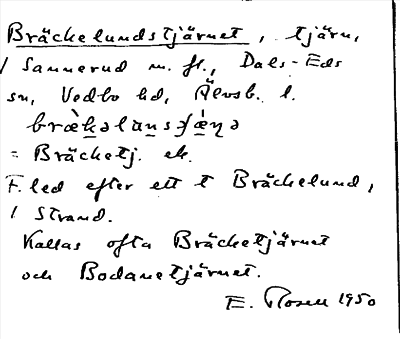 Bräckelundstjärnet, tjärn,
/ Sannerud m. fl., Dals-Eds
sn, Vedbo hd, Älvsb. l.
= Bräcketj. ek.
F. led efter ett t Bräckelund,
/ Strand.
Kallas ofta Bräcketjärnet
och Bodanetjärnet.
E. Rosell 1950